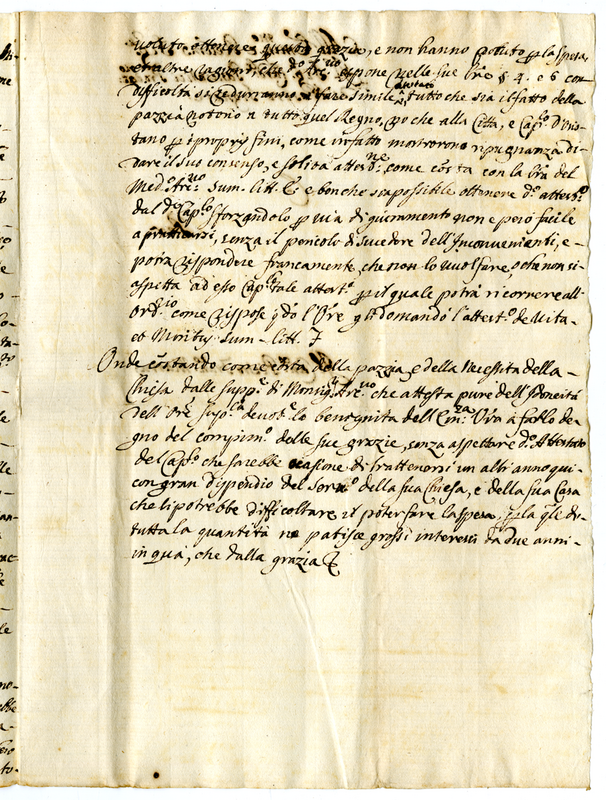 voluto ottenere questa grazia, e non hanno potuto p la spesa,
et altre ragioni che do Arc.uo espone nelle sue lre § 4. e 6 con
difficoltà si ridurranno a fare simile tutto che sia il fatto della
pazzia notorio a tutto quel Regno, poiche alla Città, e Cap.lo d'Oris-
tano p i proprij fini, come infatto mostrorono ripugnanza di
dare il suo consenso, e solità attest.ne come costa con la lra del
Med.o Arc.uo Sum. litt. e benche sia possibile ottenere d.o attest.o
dal d.o Cap.lo sforzandolo p via di giuramento non e però facile
a pratticarsi, senza il pericolo di succedere dell'Inconvenienti, e
potrà rispondere francamente, che non lo vuol fare, o che non si
aspitta ad esso Cap.lo tale attest.o p il quale potrà ricorrere all'
Ord.rio come rispose q.do l'Ore gli domandò l'attest.o de Vita
et Moribus Sum. litt. F
Onde costando come costa della pazzia, e della Necessita della
Chiesa dalle supp.e di Monsig.r Arc.uo che attesta pure dell'Idoneità
dell'Ore, sup.ca devot.e la benignita dell'Em.za Vra à farlo de-
gno del compim.o delle sue grazie, senza aspettare d.o Attestato
del Cap.lo che sarebbe ocasione di trattenersi un altro anno qui
con gran dispendio del Serv.o della sua Chiesa, e della sua Casa
che li potrebbe difficoltare il poter fare la spesa, p la q.le di
tutta la quantità ne patisce grossi interessi da due anni
in quà, che dalla grazia